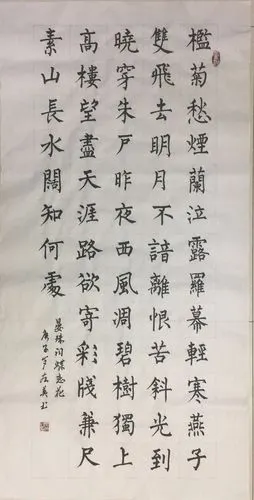 檻菊愁煙蘭泣露羅幕輕寒燕子
雙飛去明月不諳離恨苦斜光到
曉穿朱戶昨夜西風凋碧樹獨上
高樓望盡天涯路欲寄彩牋兼尺
素山長水闊知何處
晏殊词蝶恋花
庚子